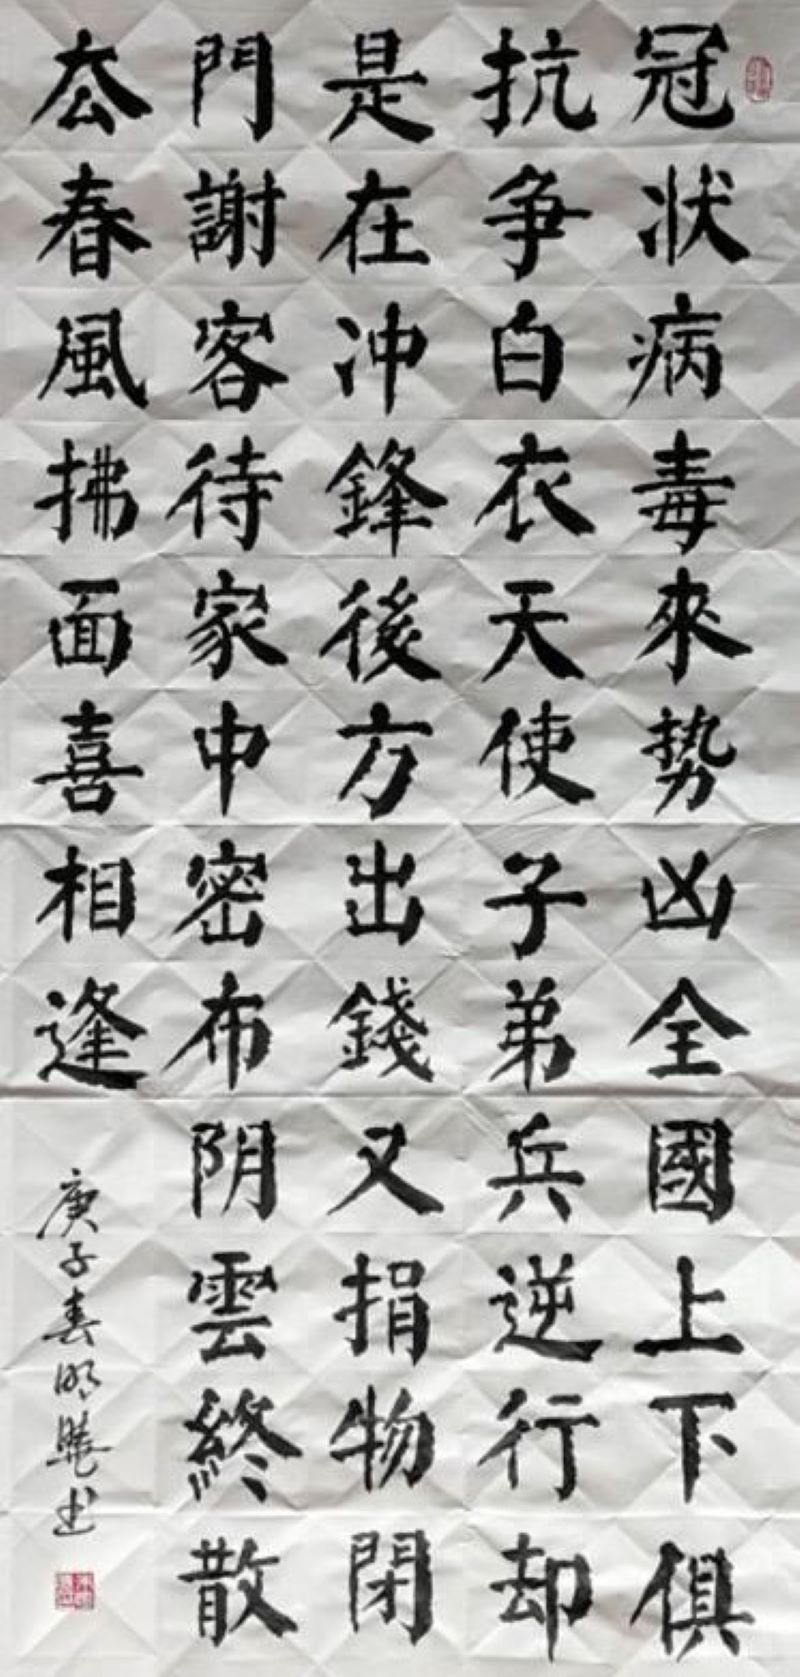 冠状病毒來势凶全國上下俱
抗争白衣天使子弟兵逆行却
是在冲鋒後方出錢又捐物閉
門謝客待家中密布阴雲終散
厺春風拂面喜相逢
庚子春明艷书